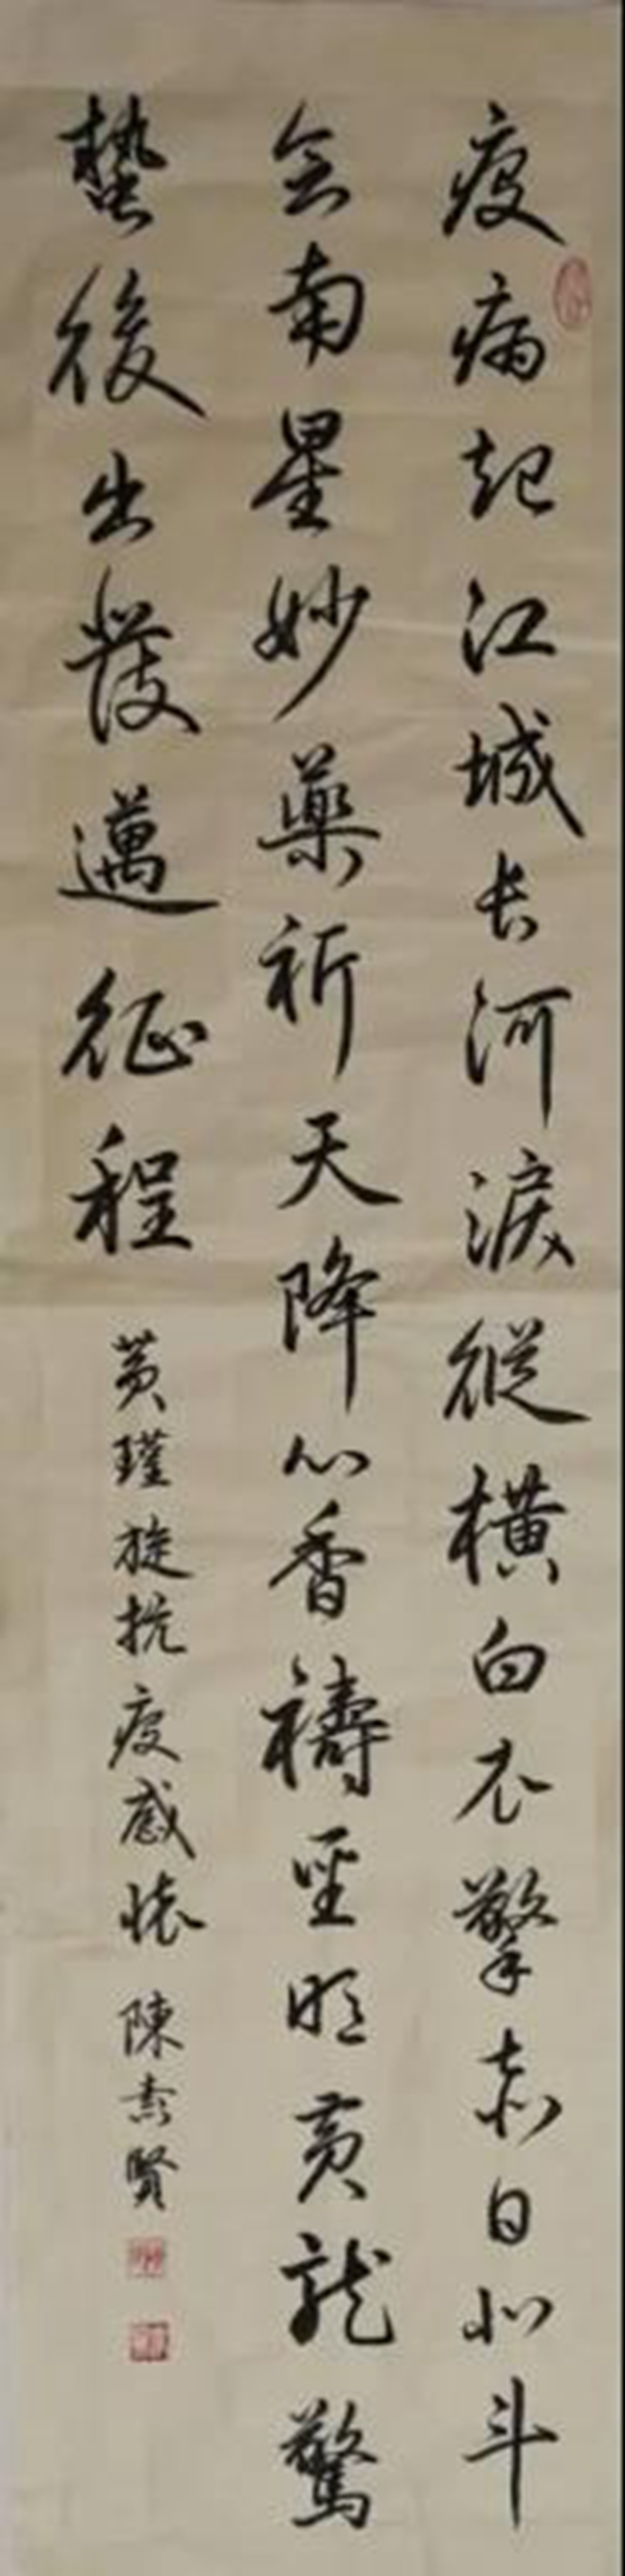 疫病起江城长河淚縱橫白衣擎赤日北斗
会南星妙藥祈天降心香禱聖明黃龍驚
蟄後出發邁征程
黃瑾旋抗疫感懷 陳素賢